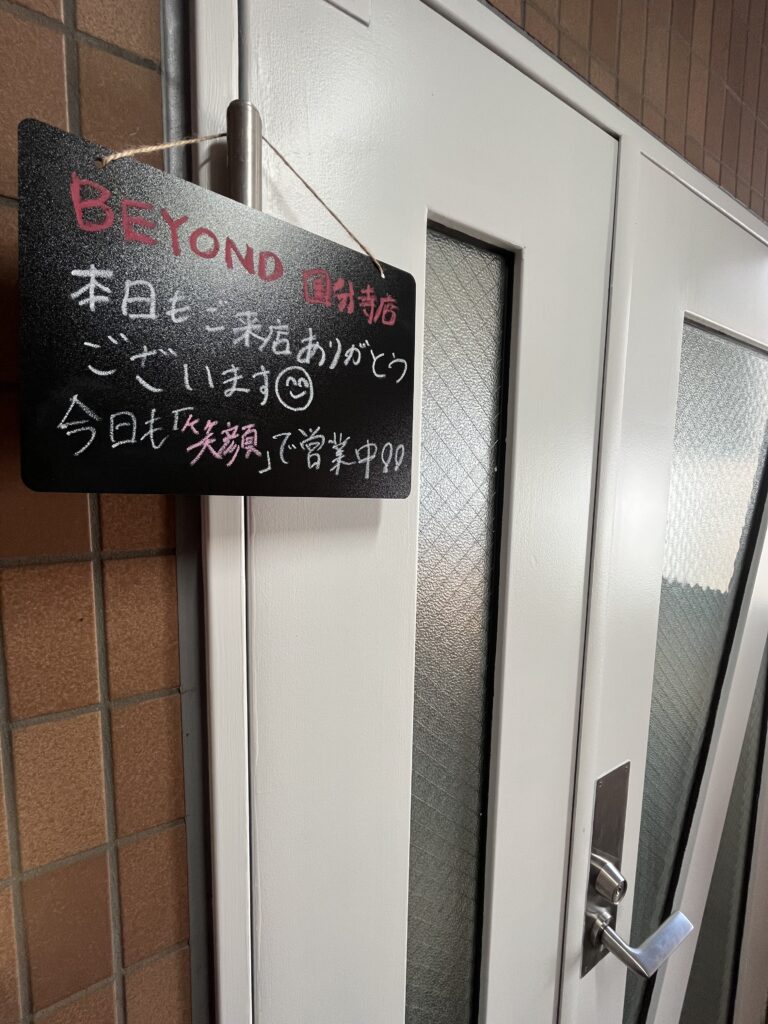 BEYOND 国分寺店
本日もご来店ありがとう
ございます😊
今日も「笑顔」で営業中!!